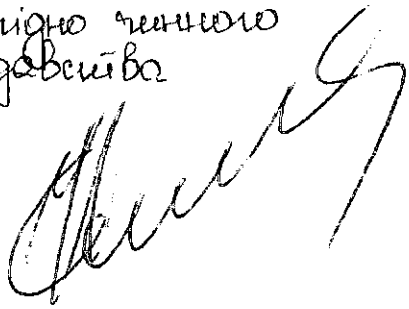 гідно чинного
давства